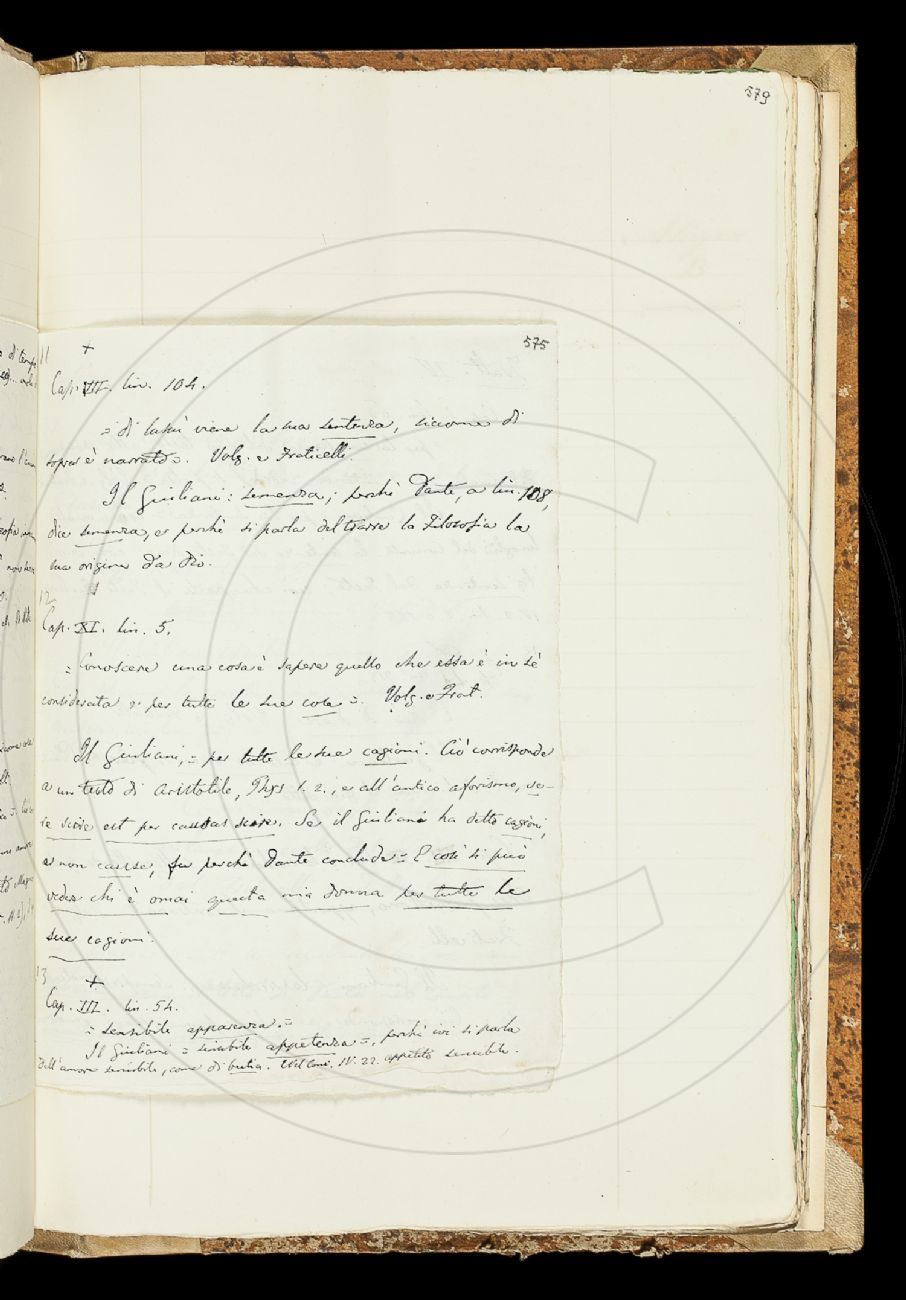 579
575
11 +
Cap. VII. lin. 104.
= di lassù viene la sua sentenza, siccome di
sopra è narrato =. Volg. e Fraticelli
Il Giuliani: semenza; perchè Dante, a lin. 108,
dice semenza, e perchè si parla del trarre la Filosofia la
sua origine da Dio.
12
Cap. XI. lin. 5.
= Conoscere una cosa è sapere quello che essa è in sè
considerata e per tutte le sue cose =. Volg. e Frat.
Il Giuliani, = per tutte le sue cagioni. Ciò corrisponde
a un testo di Aristotile, Phys 1. 2., e all'antico aforismo, ve-
re scire est per caussas scire. Se il Giuliani ha detto cagioni,
e non cause, fu perchè Dante conclude = E così si può
veder chi è omai questa mia donna per tutte le
sue cagioni.
13 +
Cap. III. lin. 54.
= sensibile apparenza. =
Il Giuliani = sensibile appetenza =, perchè ivi si parla
dell'amore sensibile, come di bestia. Nel Conv. IV. 22. appetito sensibile.